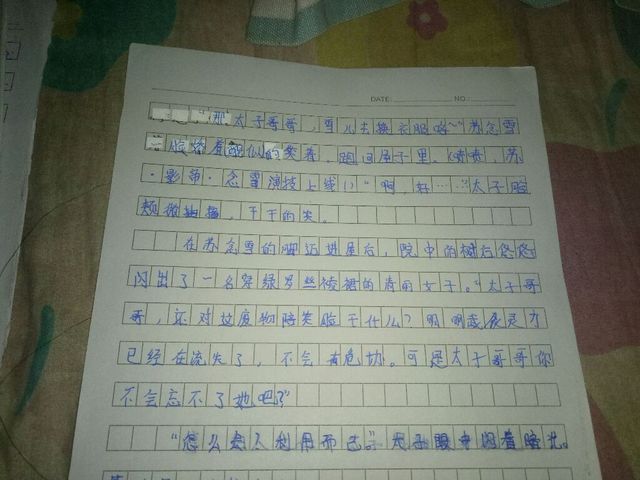 DATE: NO:
"那太子哥哥，雪儿去换衣服咯~"苏念雪
一脸 着 似的笑着，跑回屋子里。(啧啧，苏
·影帝·念雪演技上线!)"啊，好……"太子脸
颊微抽搐，干干的笑。
在苏念雪的脚迈进屋后，院中的树后悠悠
闪出了一名穿绿罗丝绫裙的青萌女子。"太子哥
哥，还对这废物陪笑脸干什么？明明 灵力
已经在流失了，不会有危协。可是太子哥哥你
不会忘不了她吧？"
"怎么 利用而已。"太子眼中闪着暗光。